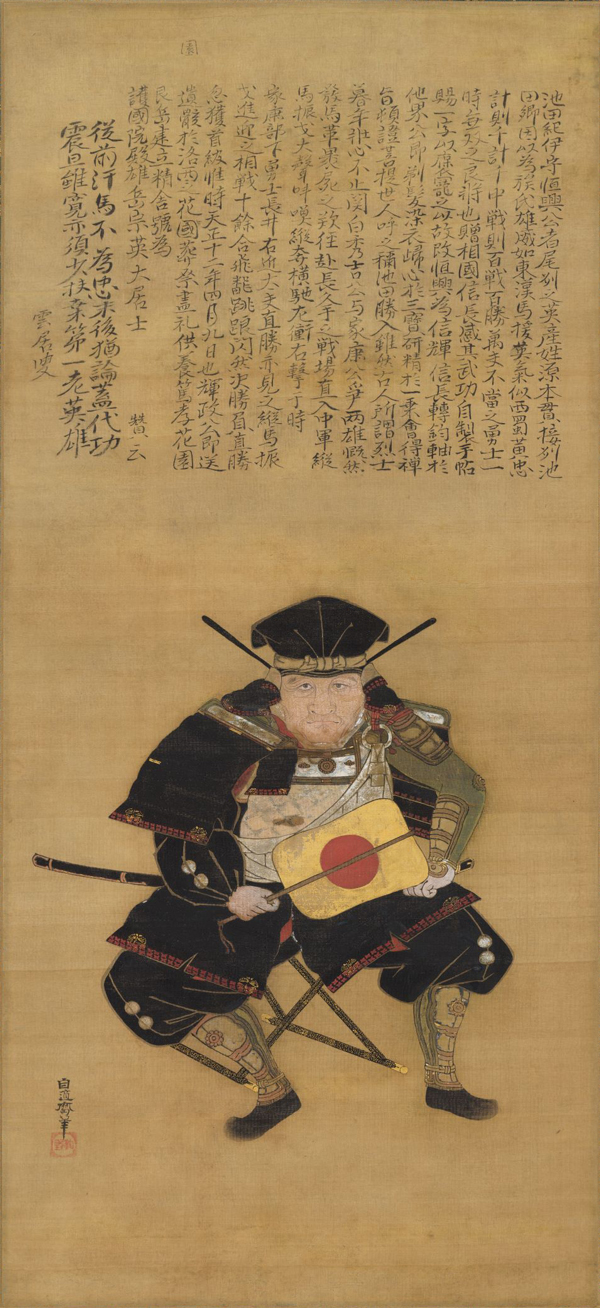 池田紀伊守恒興公者尾列之英産姓源本貫接列池
田郷因以為族氏雄威如東漢馬援英氣似西蜀黄忠
計則千計々中戰則百戰百勝萬夫不當之勇士一
時無双之良將也贈相國信長感其武功自製手帖
賜一字以廣寵之以故改恒興為信輝信長轉鈞軸於
他界公即剃髪染衣歸心於三寶研精於一乘會得禪
旨頓證菩提世人呼之稱池田勝入雖然古人所謂烈士
暮年壯心不止関白秀吉公与家康公爭両雄慨然
馬革裹屍之欤徃赴長久手之戰場直入中軍縱
馬振戈大聲呼縱奔横馳左衝右撃丁時
家康部下勇士長井右近大夫直勝亦見之縱馬振
戈進迎之相戰十餘合飛跳踉閃然決勝負直勝
急獲首級惟時天正十二年四月九日也輝政公即送
遺骸於洛西之花園葬祭盡礼供養篤孝花園
艮岳建立精舎號為
護國院殿雄岳宗英大居士
賛云
從前汗馬不為忠末後猶論蓋代功
震旦雖寛亦須少扶桒第一老英雄
雲居叟
自適齋筆